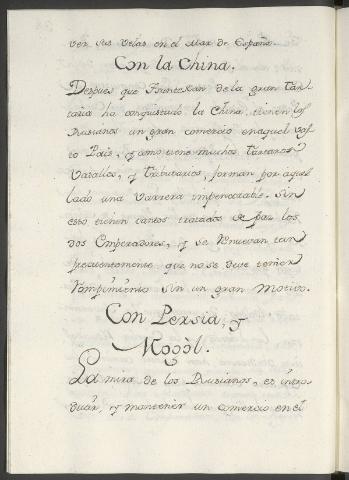 ver sus velas en el Mar de España.
Con la China.
Despues que Xuntechan de la gran Tar
taria ha conquistado la China, tienen los
Rusianos un gran comercio en aquel vas
to Pais, y como tiene muchos Tartaros
Vasallos, y Tributarios, forman por aquel
lado una Varrera impenetrable. Sin
esto tienen tantos tratados de paz los
dos Emperadores, y se renuevan tan
frecuentemente que no se deve temer
rompimiento sin un gran motivo.
Con Persia, y
Mogòl.
La mira de los Rusianos, es intro
ducir, y mantener un comercio en el